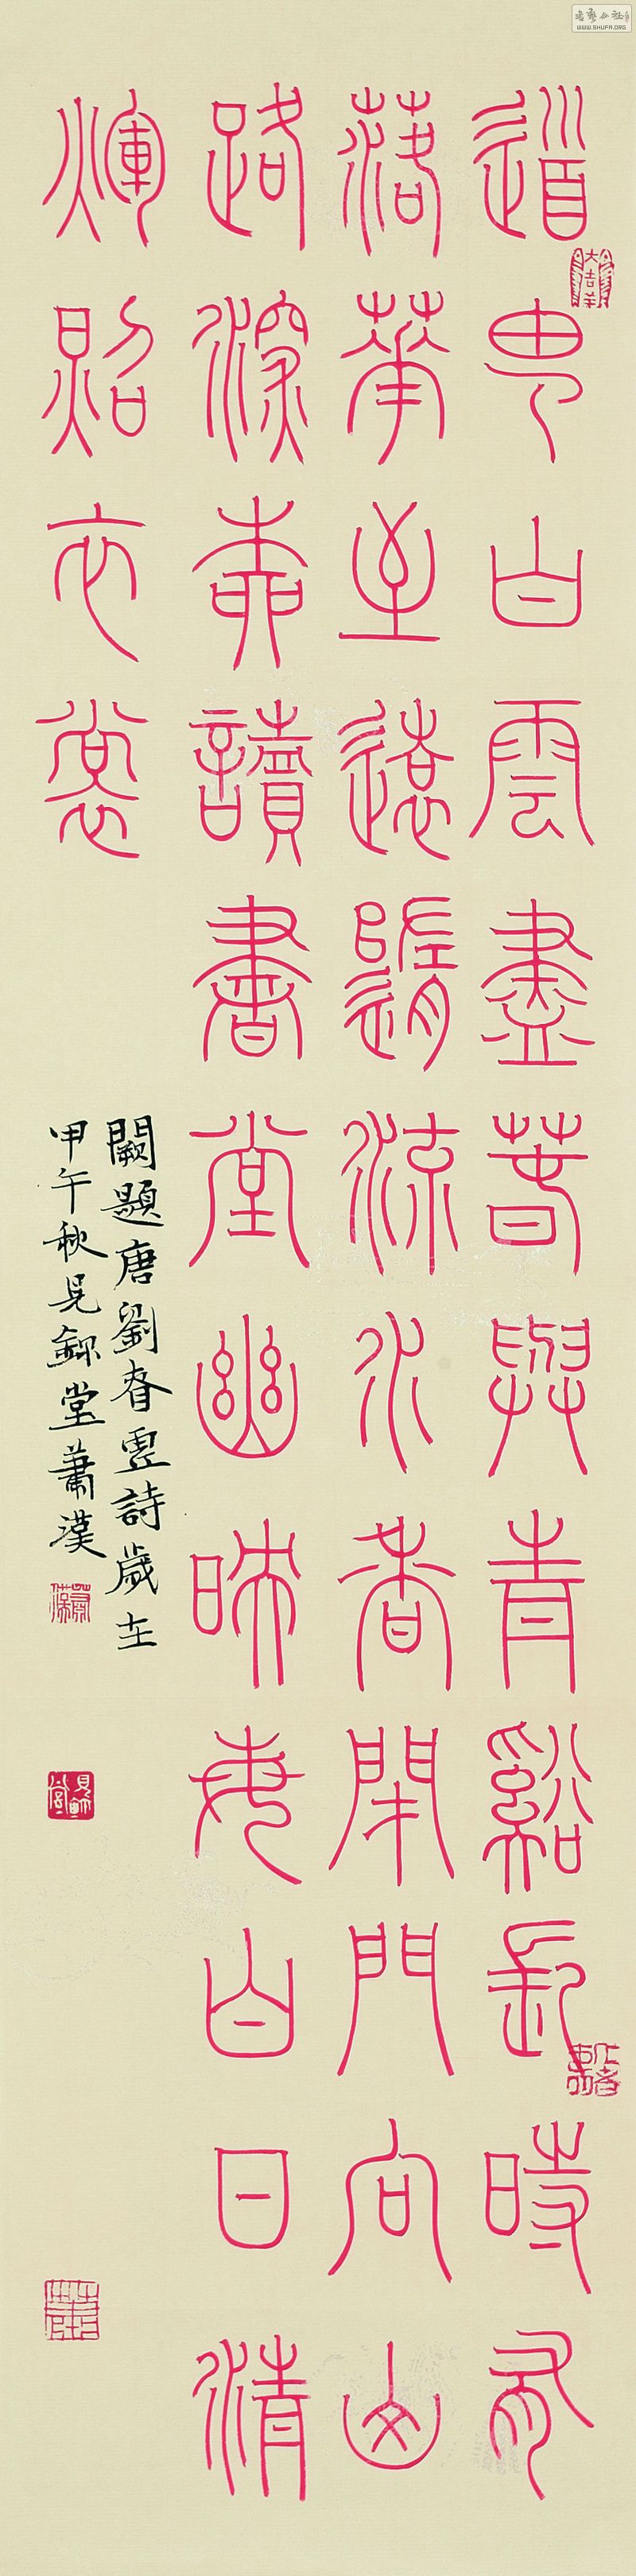 道由白雲盡春與青谿長時有
落華至遠隨流水香閑門向山
路深柳讀書堂幽映每白日清
輝照衣裳
闕題唐劉眘虛詩歲在
甲午秋見堂蕭漢
大吉羊
WWW.SHUFA.ORG